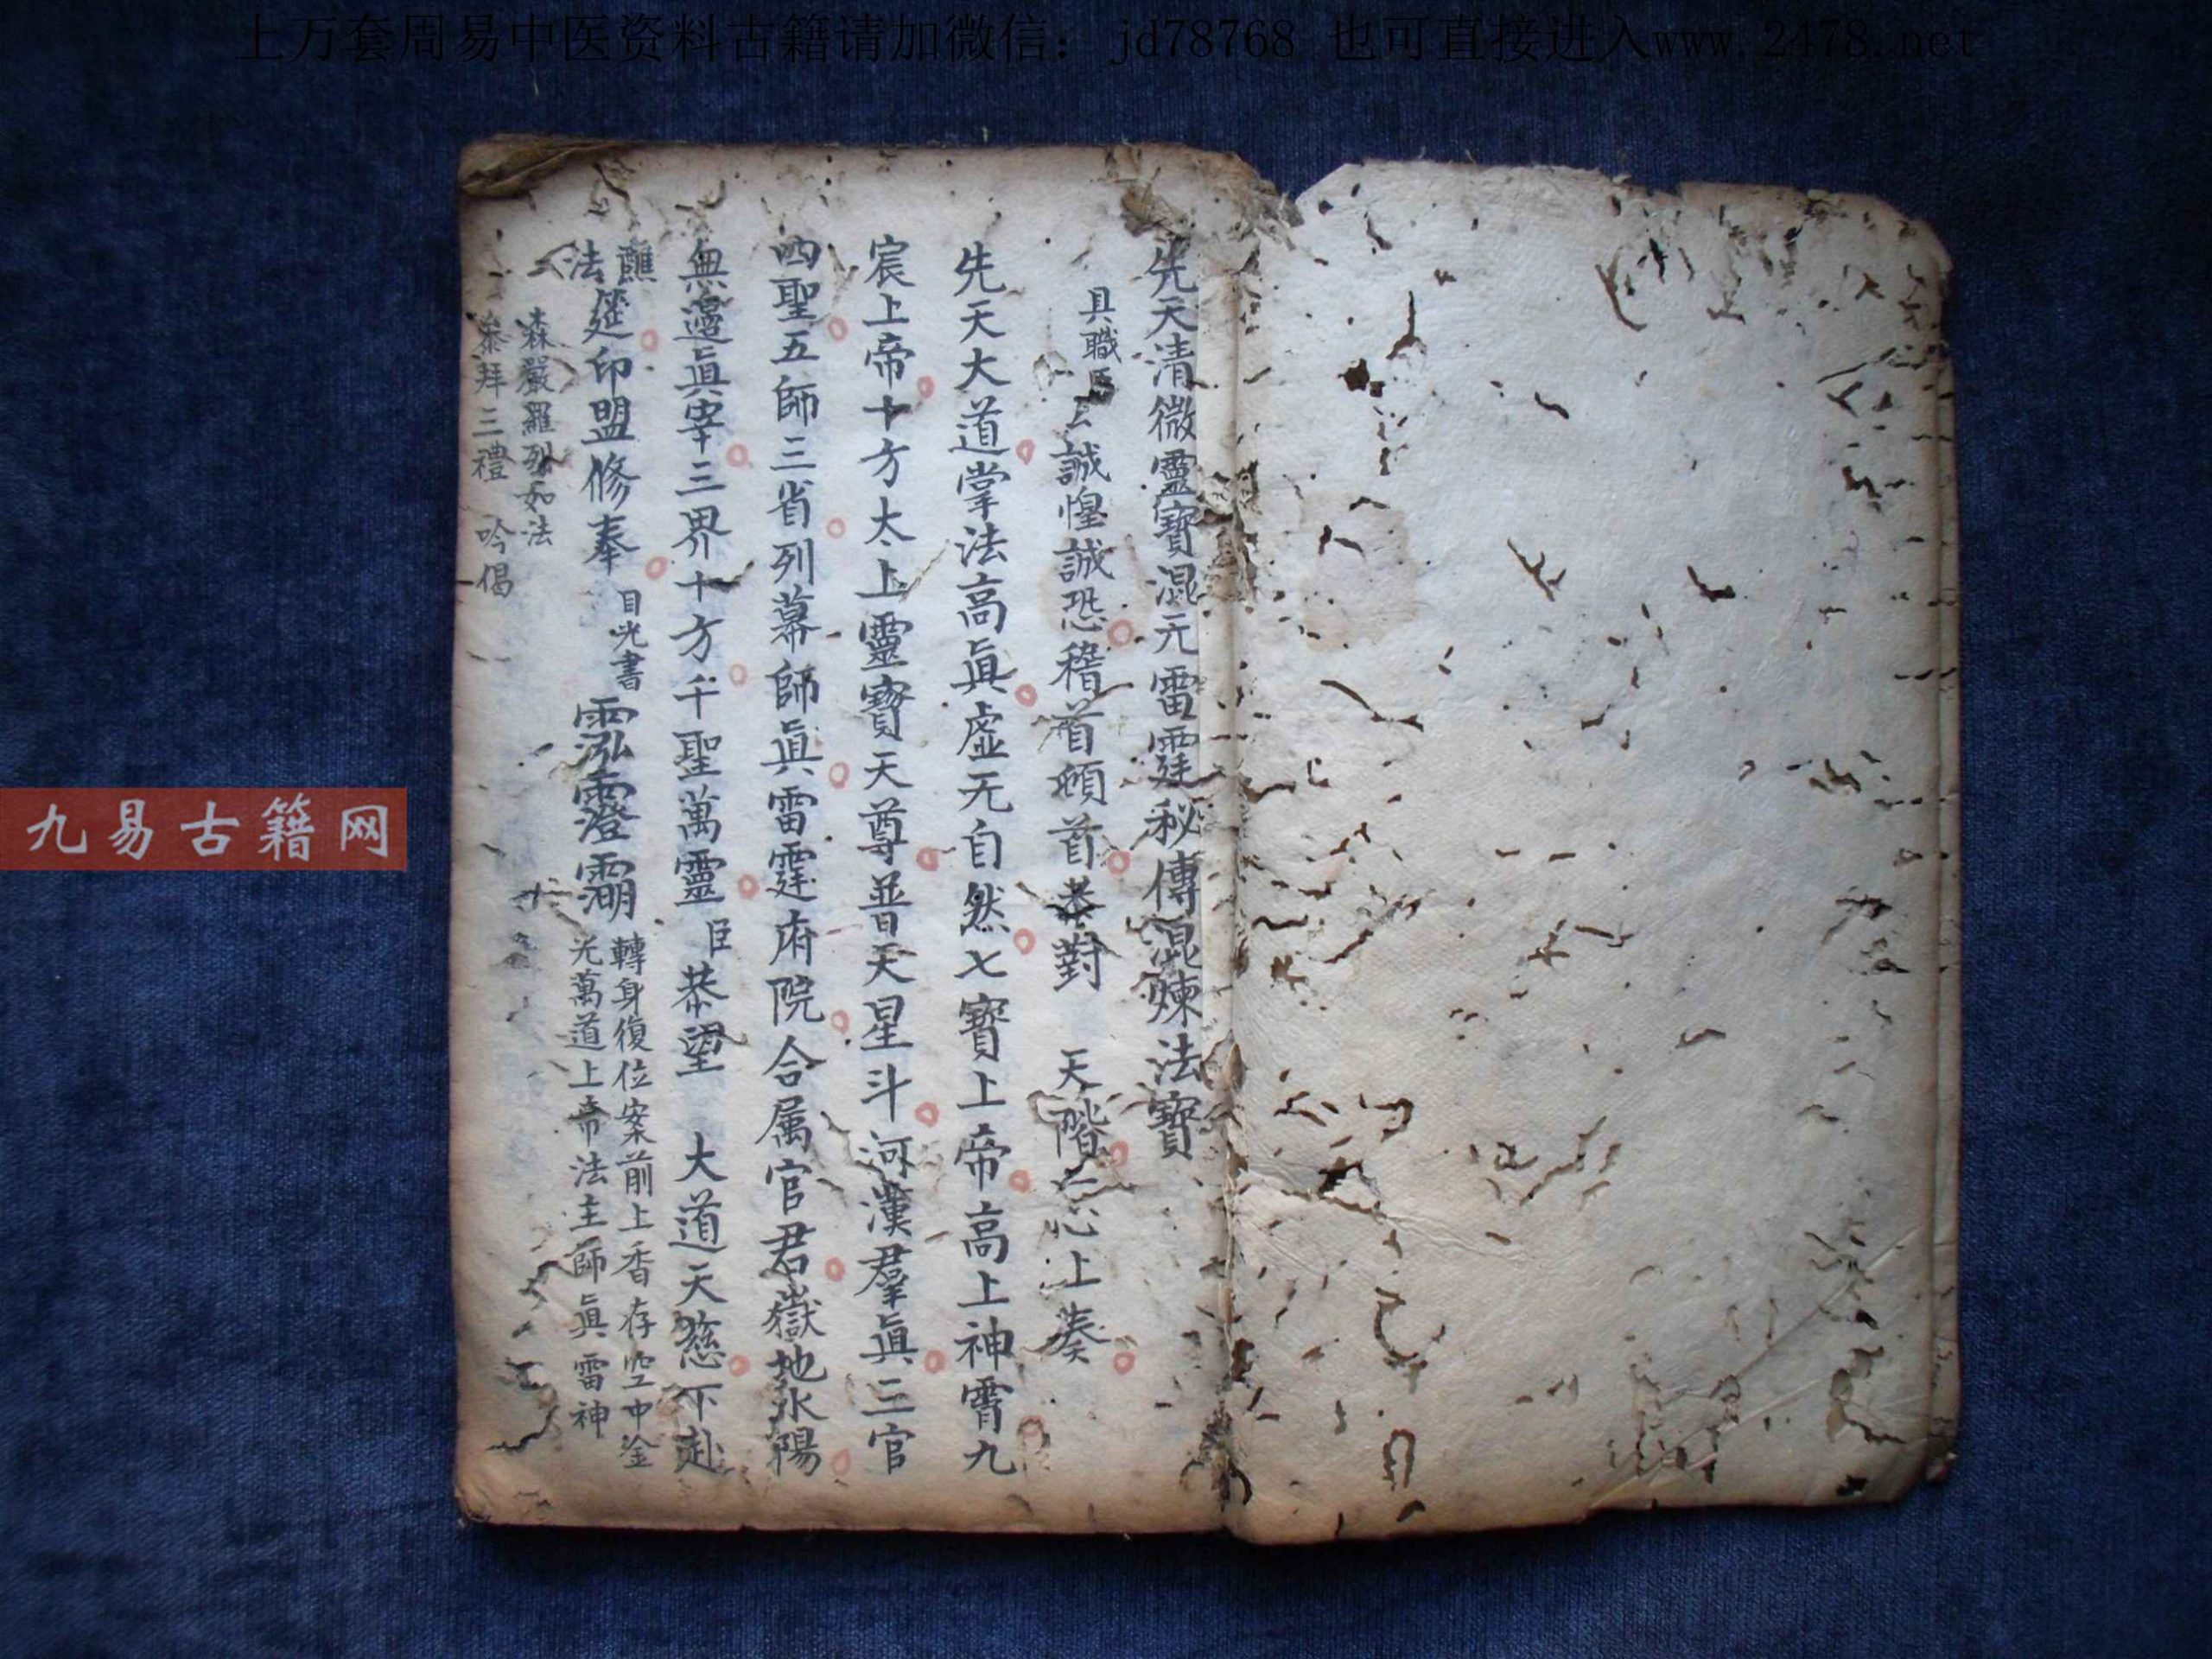 上万套周易中医资料古籍请加微信： jd78768 也可直接进入www.2478.net
九易古籍网
先天清微靈寳混元雷霆秘傳混煉法寳
具職臣厶誠惶誠恐稽首頓首恭對 天階 心上奏
先天大道掌法高眞虚无自然七寳上帝高上神霄九
宸上帝十方太上靈寳天尊普天星斗河漢羣眞三官
四聖五師三省列幕師眞雷霆府院合属官君嶽地水陽
無邊眞宰三界十方千聖萬靈 臣恭望 大道天慈下赴
醮
法
筵印盟修奉 目光書 轉身復位案前上香存空中金
光萬道上帝法主師眞雷神
森嚴羅列如法
叅拜三禮 吟偈